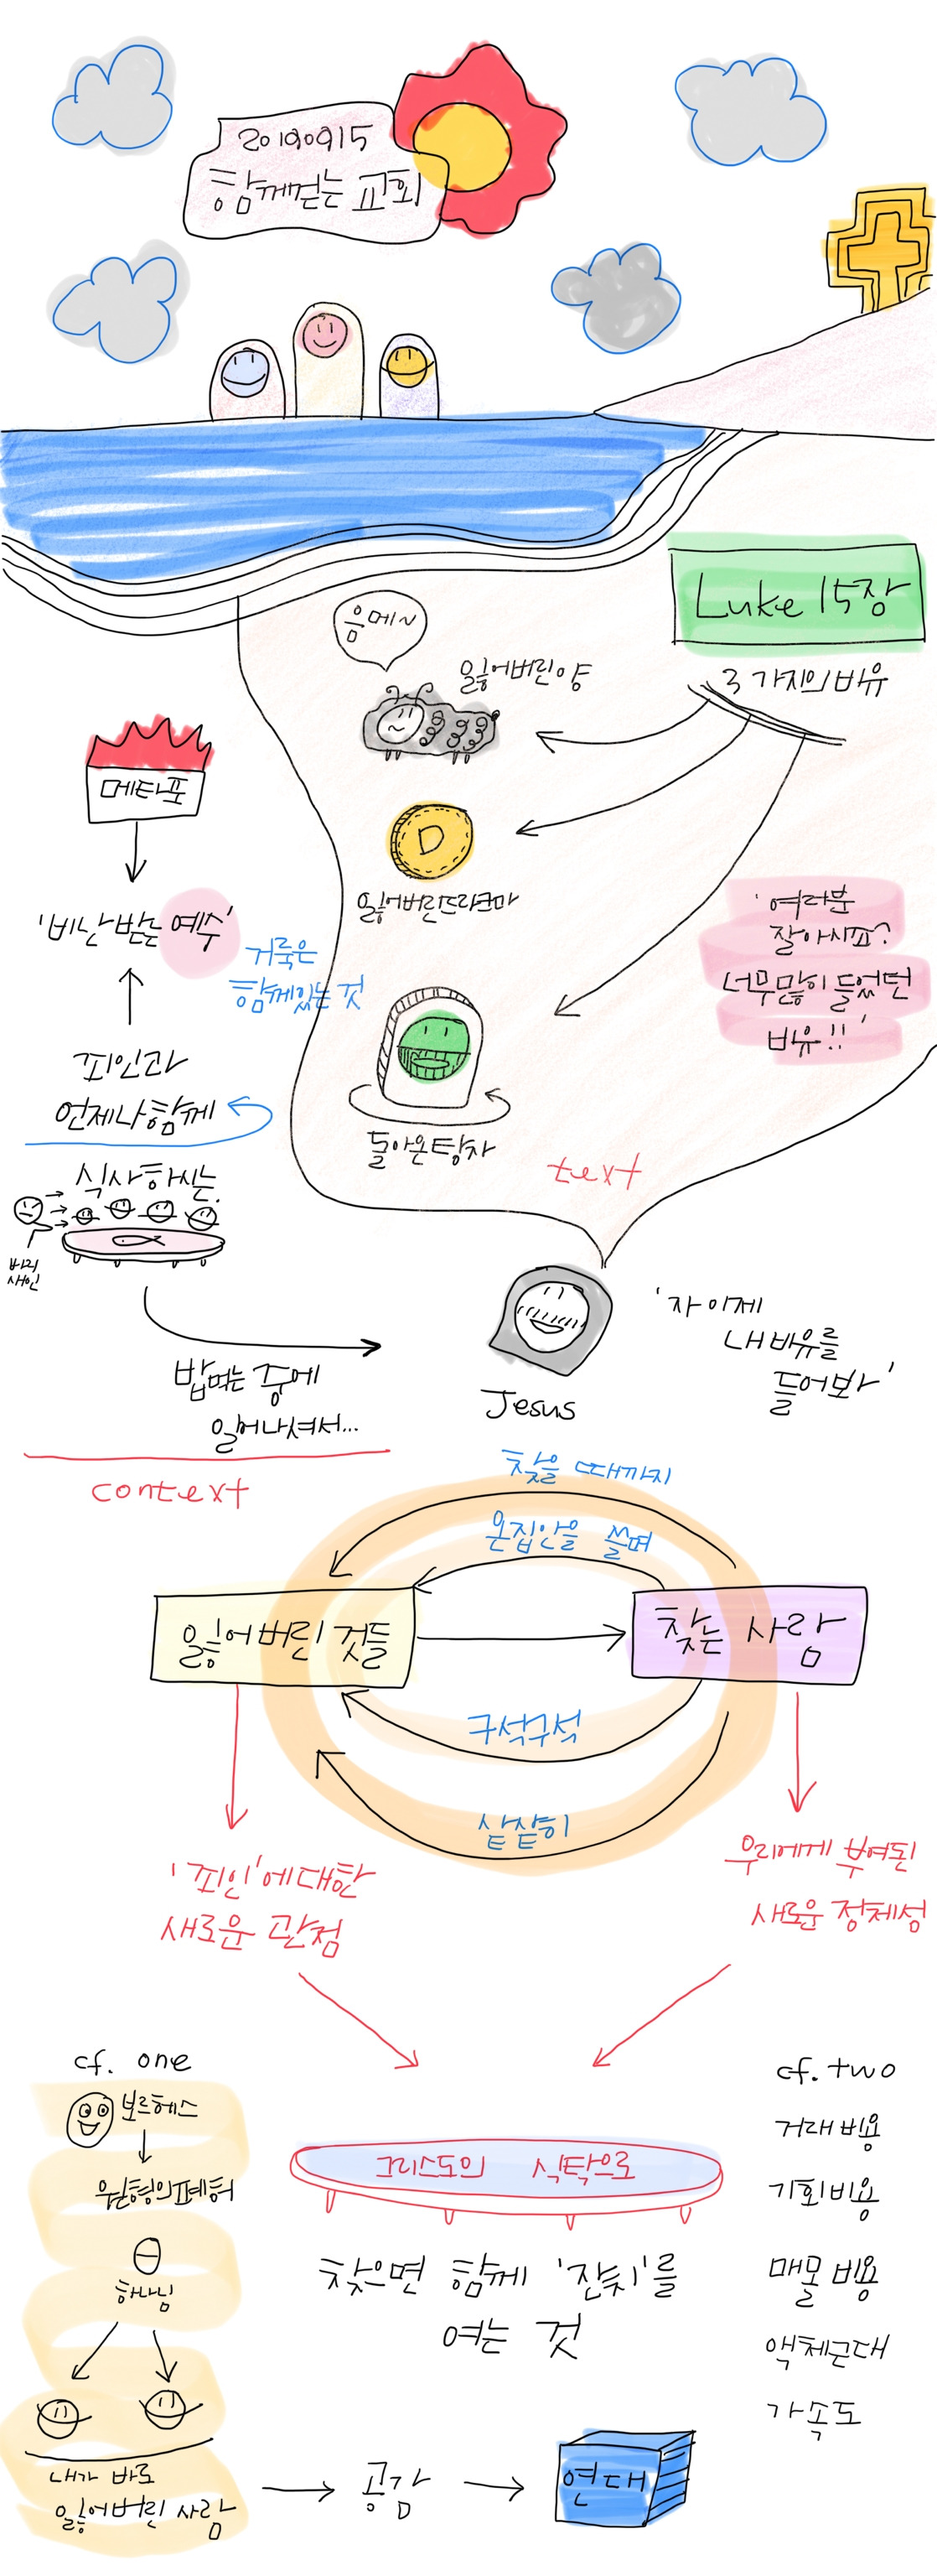 20190915
함께걷는 교회
Luke 15장
3가지의 비유
음메~
잃어버린양
D
잃어버린드라크마
돌아온탕자
'여러분
잘아시죠?
너무많이 들었던
비유!!'
text
메타포
'비난받는 예수'
거룩은
함께있는 것
죄인과
언제나함께
식사하시는
바리
새인
밥먹는 중에
일어나셔서...
context
Jesus
'자 이제
내 비유를
들어봐'
찾을 때까지
온집안을 쓸며
잃어버린 것들
찾는 사람
구석구석
샅샅히
'죄인'에대한
새로운 관점
우리에게 부여된
새로운 정체성
cf. one
보르헤스
원형의폐허
하나님
내가 바로
잃어버린 사람
그리스도의 식탁으로
찾으면 함께 '잔치'를
여는 것
cf. two
거래비용
기회비용
매몰비용
액체근대
가속도
공감
연대